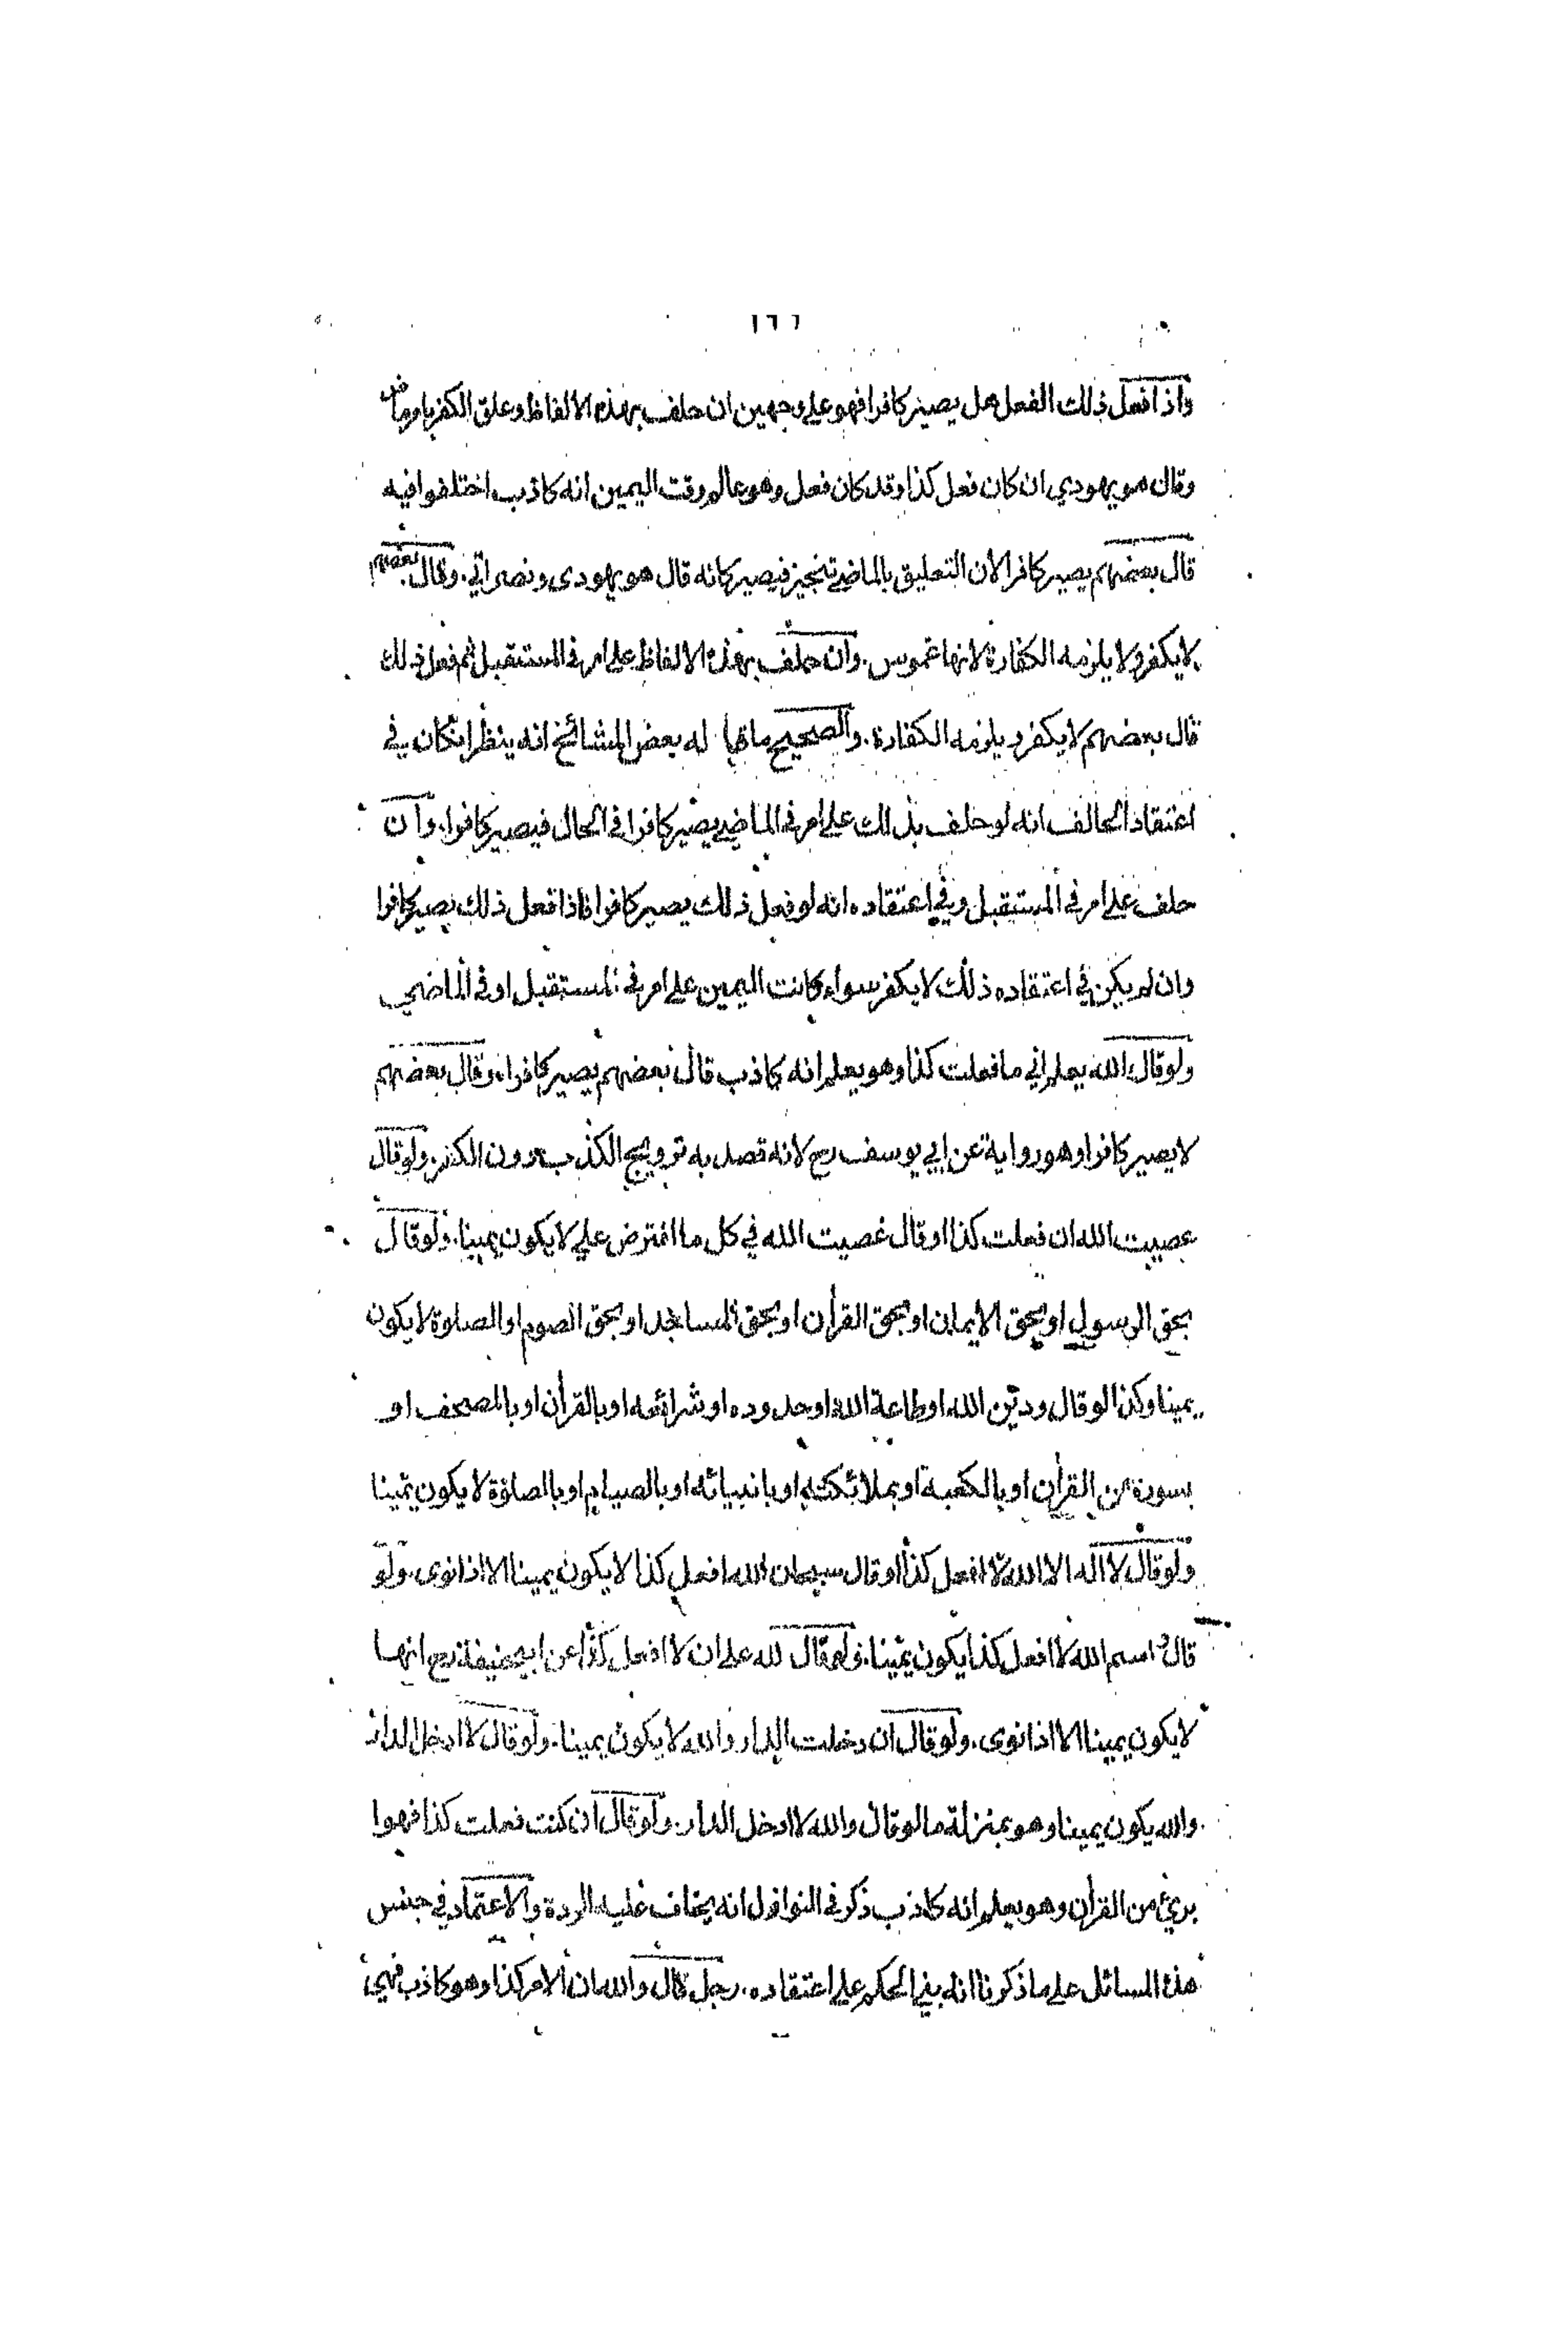 ١٦٦
واذا فعل ذلك الفعل هل يصير كافرا فهو على وجهين ان حلف بهذه الالفاظ وعلق الكفر بامر ماض
وقال هو يهودي ان كان فعل كذا وقد كان فعل وهو عالم وقت اليمين انه كاذب اختلفوا فيه
قال بعضهم يصير كافرا لان التعليق بالماضي تنجيز فيصير كانه قال هو يهودى ونصراني. وقال بعضهم
لا يكفر ولا يلزمه الكفارة لانها غموس. وان حلف بهذه الالفاظ على امر في المستقبل ثم فعل ذلك
قال بعضهم لا يكفر ويلزمه الكفارة. والصحيح ما قا له بعض المشائخ انه ينظر ان كان في
اعتقاد الحالف انه لو حلف بذلك على امر في الماضي يصير كافرا في الحال فيصير كافرا. وان
حلف على امر في المستقبل وفي اعتقاده انه لو فعل ذلك يصير كافرا فاذا فعل ذلك يصير كافرا
وان لم يكن في اعتقاده ذلك لا يكفر سواء كانت اليمين على امر في المستقبل او في الماضي
ولو قال الله يعلم اني ما فعلت كذا وهو يعلم انه كاذب قال بعضهم يصير كافرا. وقال بعضهم
لا يصير كافرا وهو رواية عن ابي يوسف رح لانه قصد به ترويج الكذب دون الكفر. ولو قال
عصيت الله ان فعلت كذا او قال عصيت الله في كل ما افترض علي لا يكون يمينا. ولو قال
بحق الرسول او بحق الايمان او بحق القرأن او بحق المساجد او بحق الصوم او الصلوة لا يكون
يمينا وكذا لو قال ودين الله او طاعة الله او حدوده او شرائعه او بالقرأن او بالمصحف او
بسورة من القرأن او بالكعبة او بملائكته او بانبيائه او بالصيام او بالصلوة لا يكون يمينا
ولو قال لا اله الا الله لا افعل كذا او قال سبحان الله افعل كذا لا يكون يمينا الا اذا نوى. ولو
قال و اسم الله لا افعل كذا يكون يمينا. ولو قال لله على ان لا افعل كذا عن ابيحنيفة رح انها
لا يكون يمينا الا اذا نوى. ولو قال ان دخلت الدار والله لا يكون يمينا. ولو قال لا ادخل الدار
والله يكون يمينا وهو بمنزلة ما لو قال والله لا ادخل الدار. ولو قال ان كنت فعلت كذا فهوا
بريئ من القرأن وهو يعلم انه كاذب ذكر في النوازل انه يخاف عليه الردة والاعتماد في جنس
هذه المسائل على ما ذكرنا انه بني الحكم على اعتقاده. رجل قال والله ان الامر كذا وهو كاذب فهي